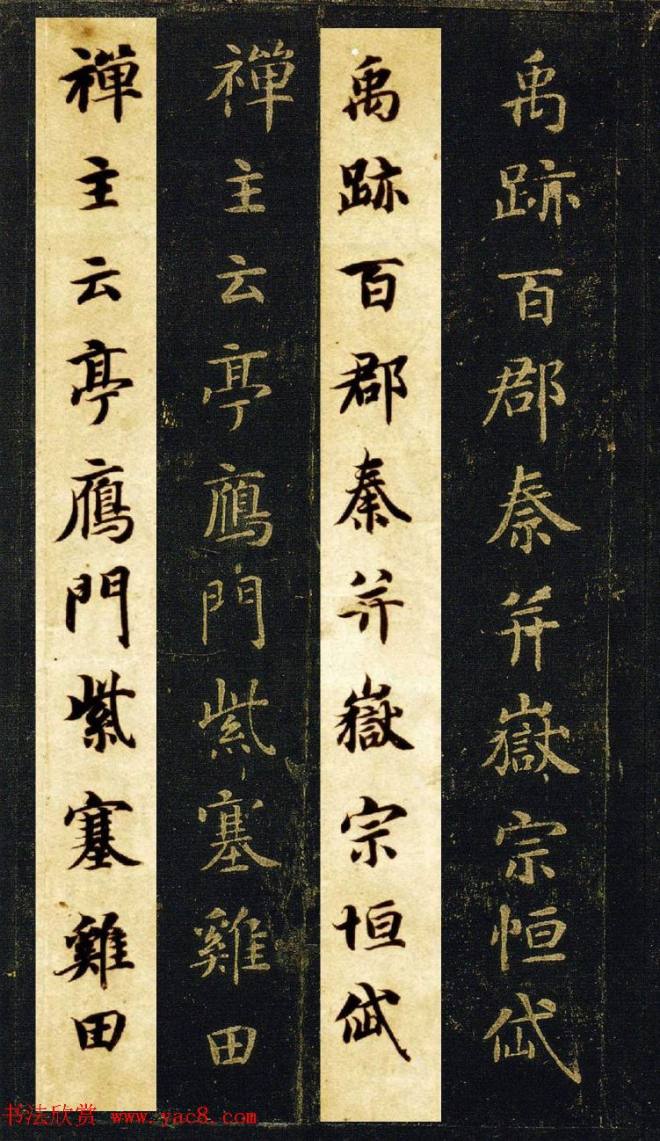 禹跡百郡秦并嶽宗恒岱
禹跡百郡秦并嶽宗恒岱
禪主云亭鴈門紫塞雞田
禪主云亭鴈門紫塞雞田
书法欣赏 www.yac8.com